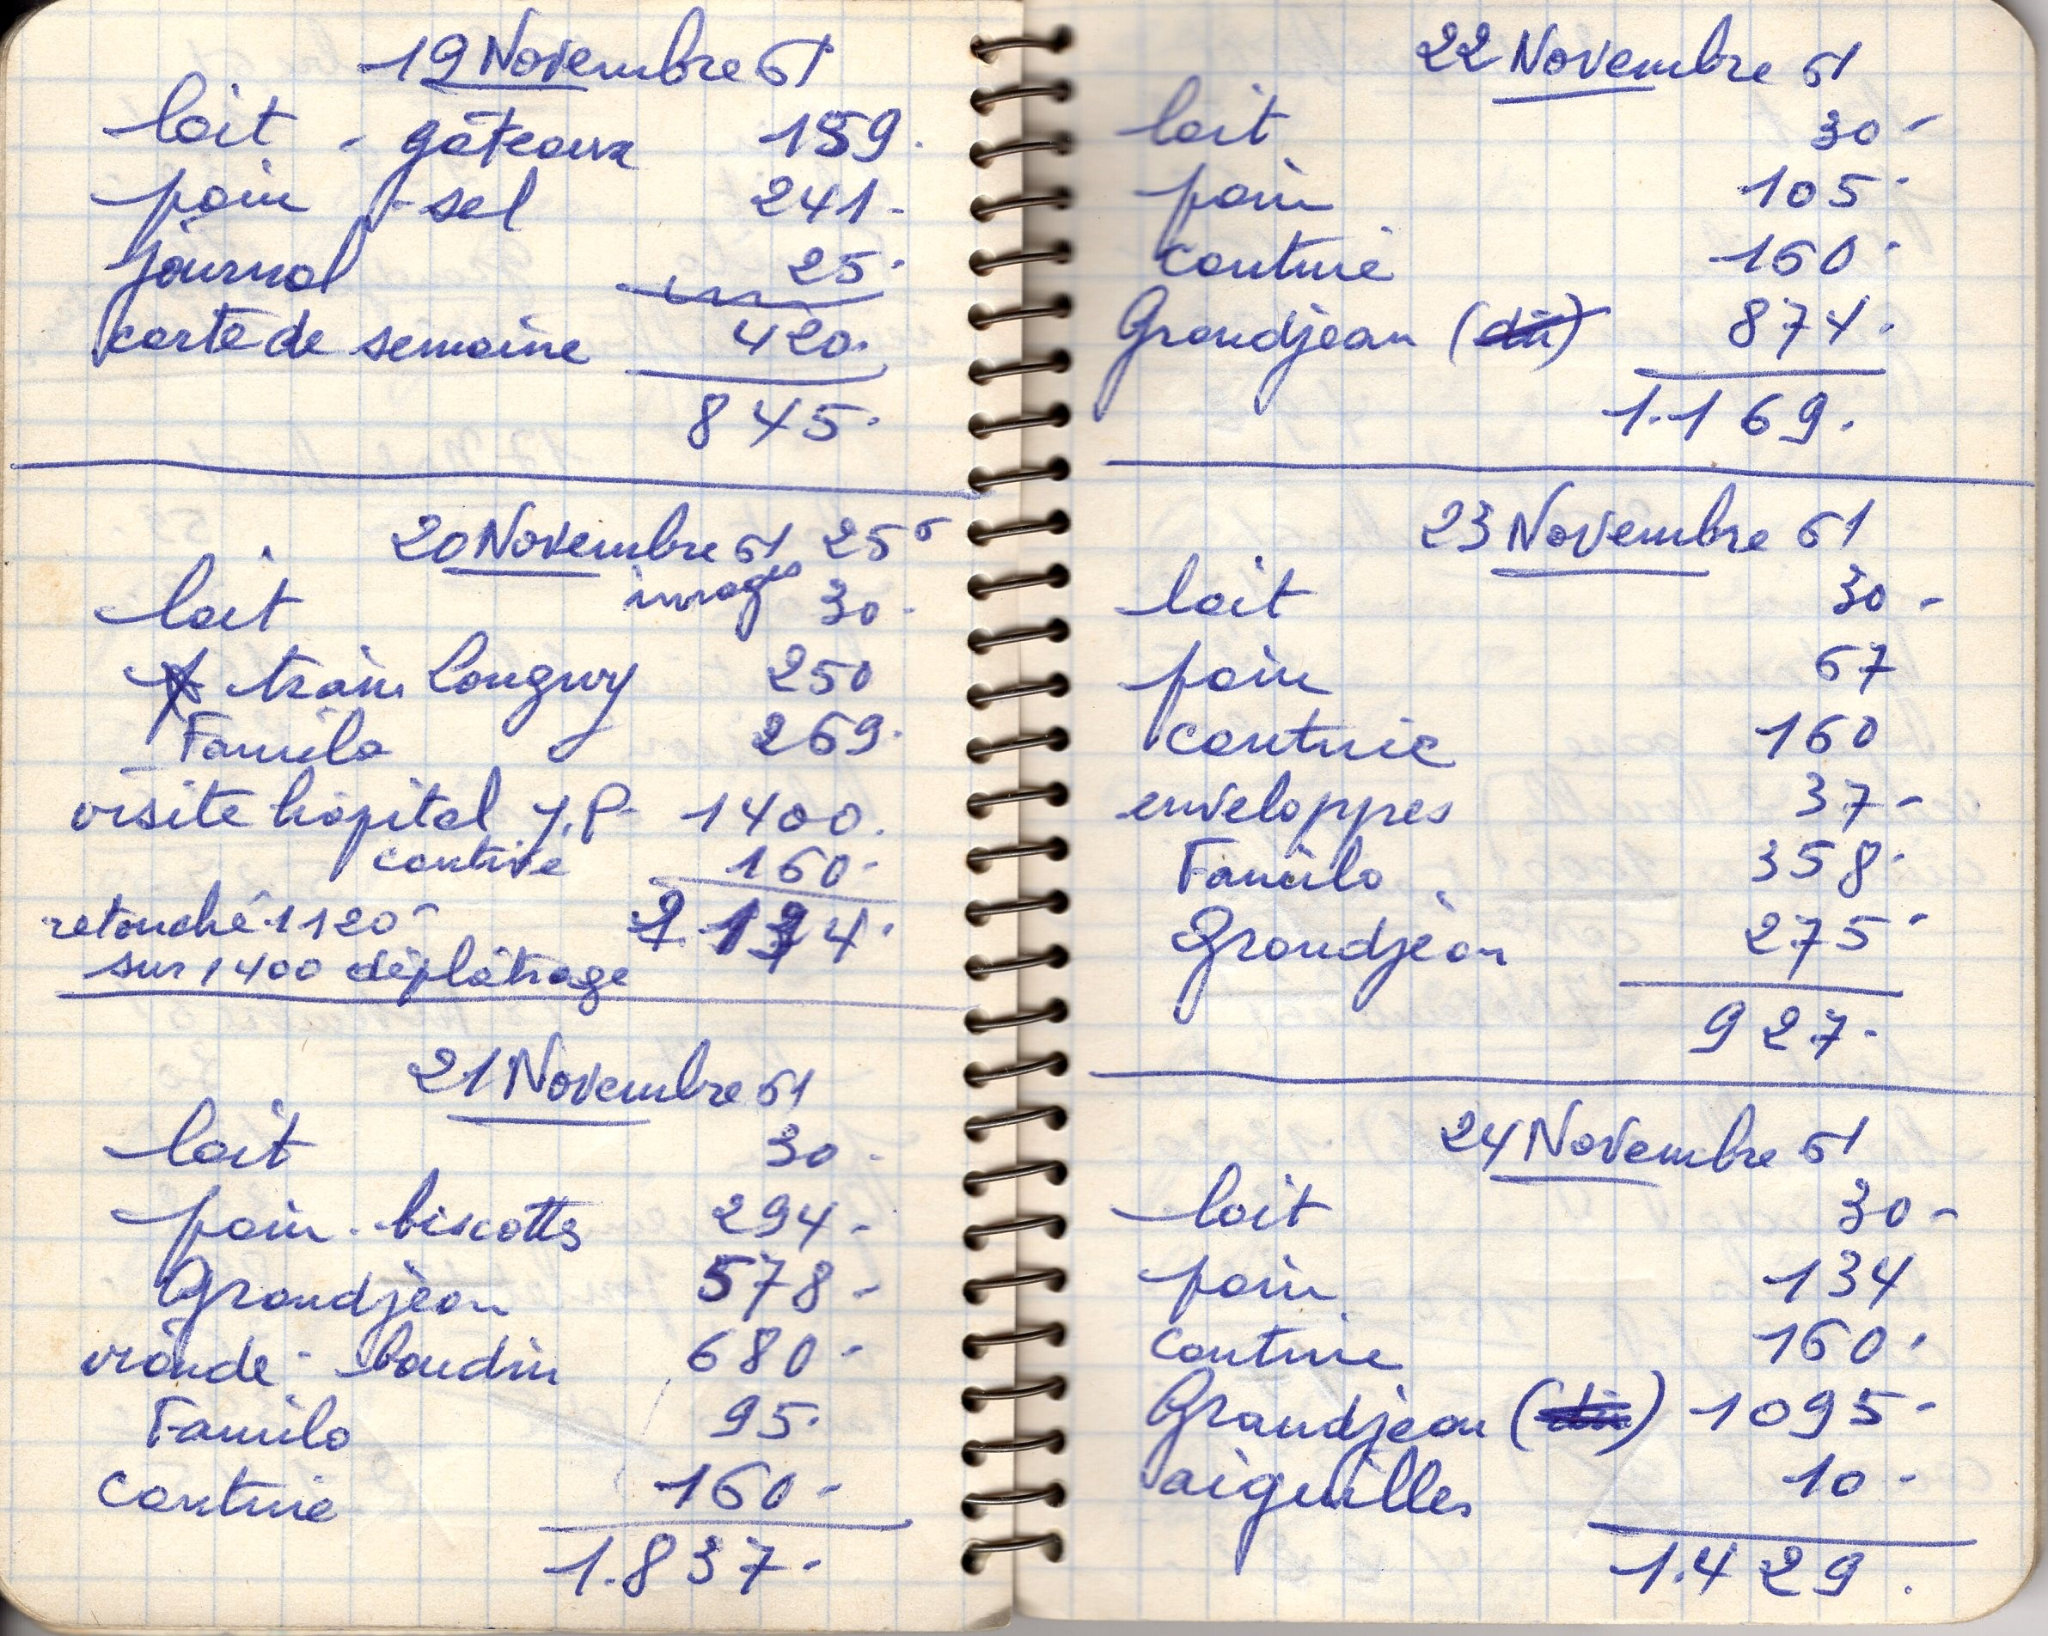 19 Novembre 61
lait - gâteaux 159.
pain - sel 241.
journal 25.
carte de semaine 420.
845.
20 Novembre 61 25
images
lait 30-
train Longwy 250
Familo 269.
visite hôpital J.P. 1400.
cantine 160-
retouché 1120-
2134.
sur 1400 déplâtrage
21 Novembre 61
lait 30-
pain - biscotts 294-
Grandjean 578-
viande - boudin 680-
Familo 95.
cantine 160-
1.837.
22 Novembre 61
lait 30-
pain 105-
cantine 160-
Grandjean (dû) 874.
1.169.
23 Novembre 61
lait 30-
pain 67
cantine 160
enveloppes 37-
Familo 358.
Grandjean 275-
927.
24 Novembre 61
lait 30-
pain 134
cantine 160.
Grandjean (dû) 1095-
aiguilles 10-
1.429.